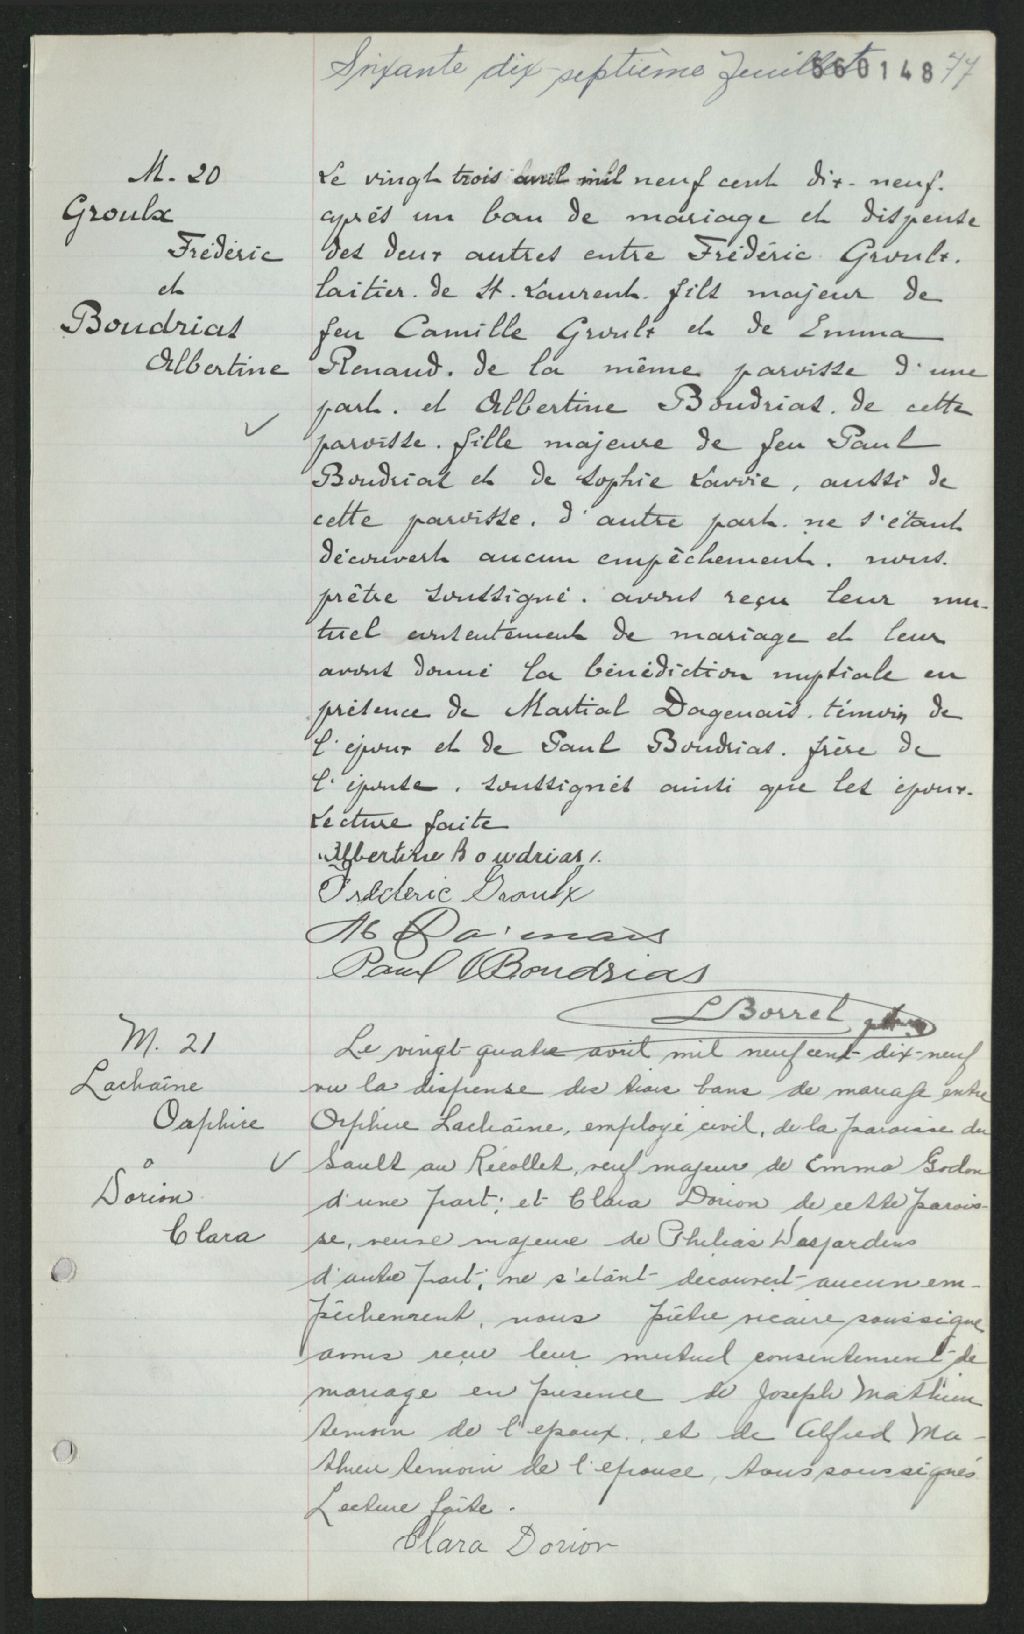 Soixante dix-septième feuillet 560148 77
M. 20
Groulx
Frédéric
et
Boudrias
Albertine
Le vingt trois avril mil neuf cent dix-neuf.
après un ban de mariage et dispense
des deux autres entre Frédéric Groulx.
laitier. de St. Laurent. fils majeur de
feu Camille Groulx et de Emma
Renaud. de la même paroisse d'une
part. et Albertine Boudrias. de cette
paroisse. fille majeure de feu Paul
Boudrias et de Sophie Lavoie, aussi de
cette paroisse. d'autre part. ne s'étant
découvert aucun empêchement. nous.
prêtre soussigné. avons reçu leur mu-
tuel consentement de mariage et leur
avons donné la bénédiction nuptiale en
présence de Martial Dagenais. témoin de
l'époux et de Paul Boudrias. frère de
l'épouse. soussignés ainsi que les époux.
Lecture faite
Albertine Boudrias.
Frédéric Groulx
Paul Boudrias
L Borrel ptre
M. 21
Lachaîne
Orphire
Dorion
Clara
Le vingt-quatre avril mil neuf cent dix-neuf
vu la dispense des trois bans de mariage entre
Orphire Lachaîne, employé civil, de la paroisse du
Sault au Récollet, veuf majeur de Emma Godon
d'une part; et Clara Dorion de cette parois-
se, veuve majeure de Philias Desjardins
d'autre part; ne s'étant découvert aucun em-
pêchement, nous prêtre vicaire soussigné
avons reçu leur mutuel consentement de
mariage en présence de Joseph Mathieu
temoin de l'epoux, et de Alfred Ma-
thieu temoin de l'epouse, tous soussignés
Lecture faite.
Clara Dorion